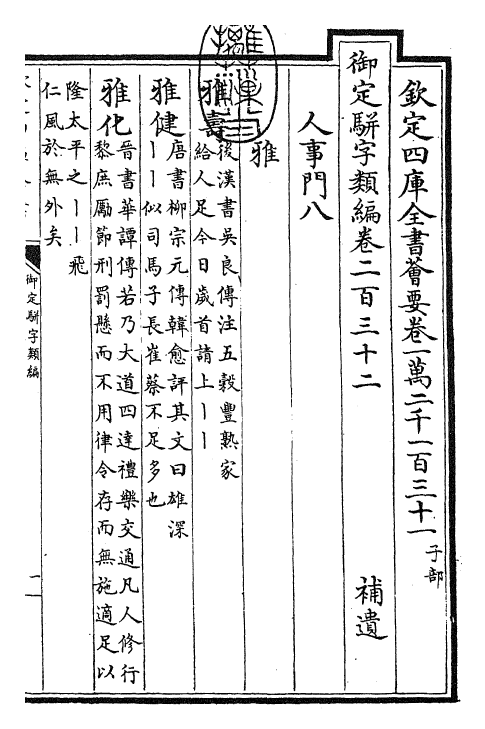 欽定四庫全書薈要卷一萬二千一百三十一 子部
御定駢字類編卷二百三十二 補遺
人事門八
雅
雅壽 後漢書吳良傳注五穀豐熟家
給人足今日歲首請上丨丨
雅健 唐書柳宗元傳韓愈評其文曰雄深
丨丨似司馬子長崔蔡不足多也
雅化 晉書華譚傳若乃大道四達禮樂交通凡人修行
黎庶勵節刑罰懸而不用律令存而無施適足以
隆太平之丨丨飛
仁風於無外矣
御定駢字類編
一